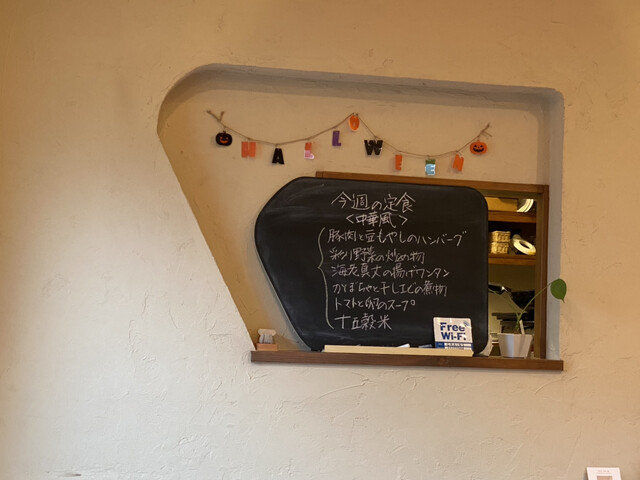 HALLOWEEN
今週の定食
<中華風>
豚肉と豆もやしのハンバーグ
彩り野菜の炒め物
海老真丈の揚げワンタン
かぼちゃと干しエビの煮物
トマトと卵のスープ
十五穀米
Free
Wi-Fi